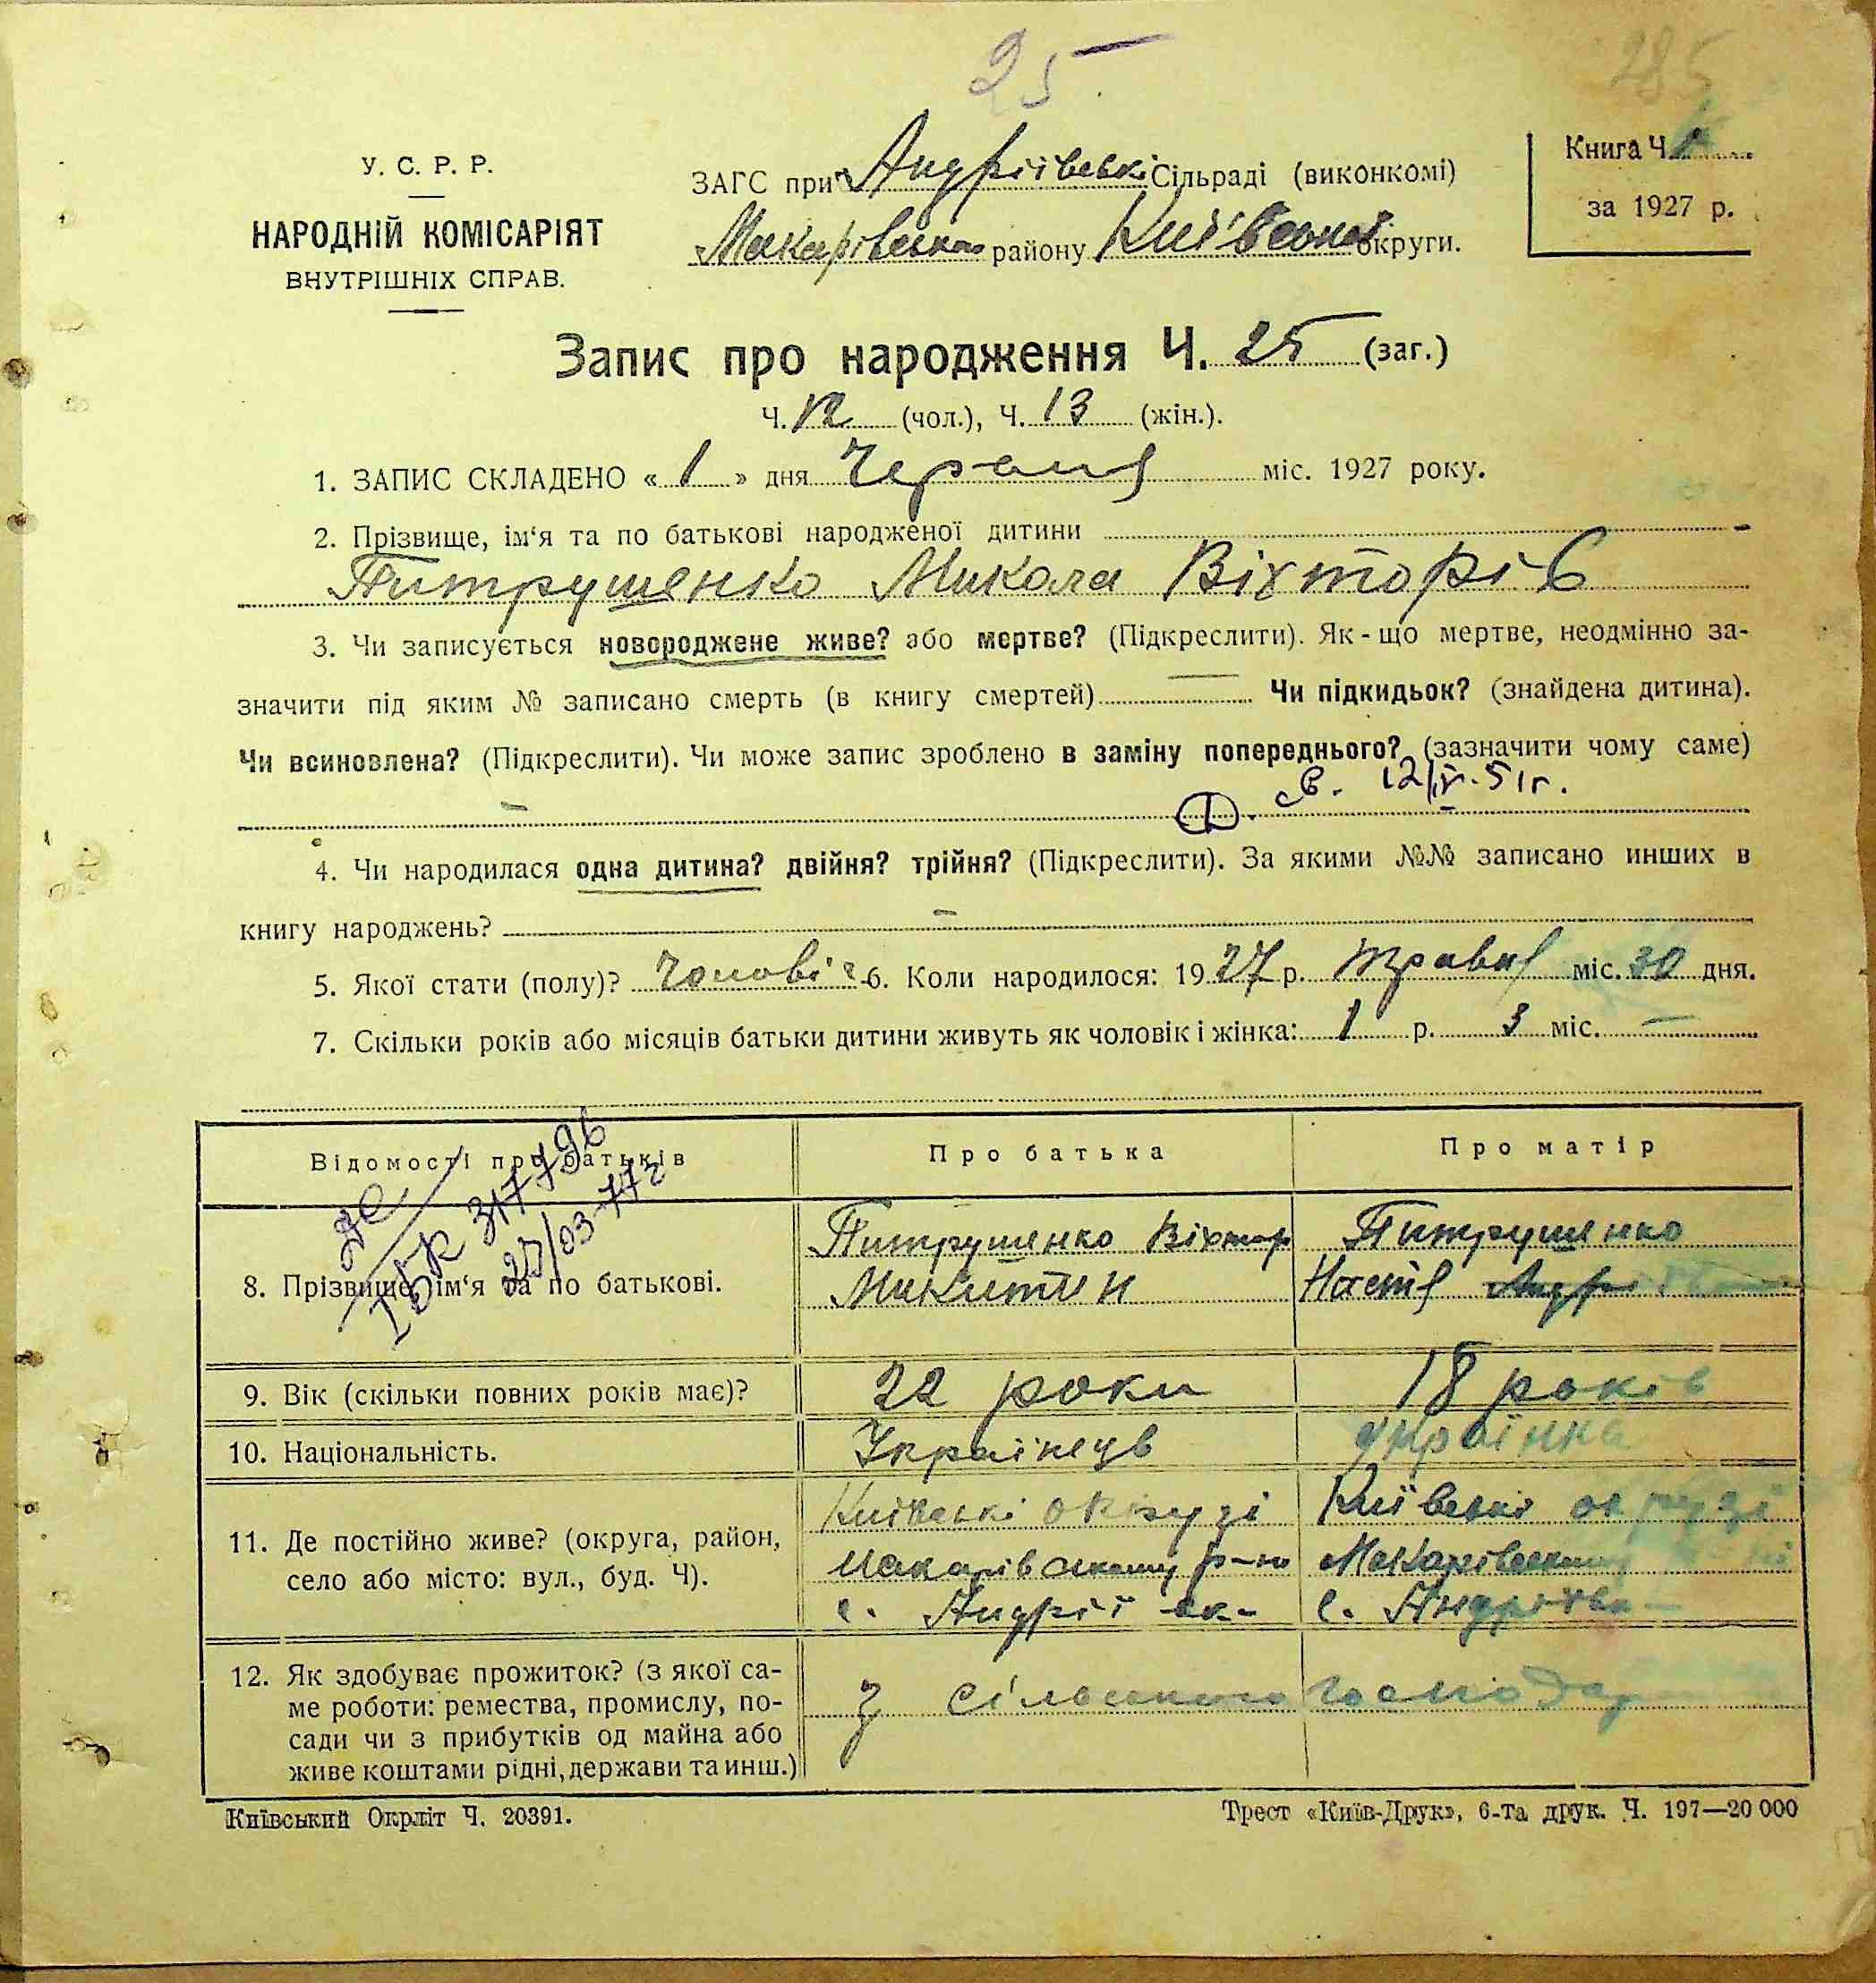 25
285
У. С. Р. Р.
НАРОДНІЙ КОМІСАРІЯТ
ВНУТРІШНІХ СПРАВ.
ЗАГС при Андріївські Сільраді (виконкомі)
Макарівського району Київської округи.
Книга Ч. 1
за 1927 р.
Запис про народження Ч. 25 (заг.)
Ч. 12 (чол.), Ч. 13 (жін.).
1. ЗАПИС СКЛАДЕНО « 1 » дня Червня міс. 1927 року.
2. Прізвище, ім‘я та по батькові народженої дитини
Питрушенко Микола Віхторів
3. Чи записується новороджене живе? або мертве? (Підкреслити). Як-що мертве, неодмінно за-
значити під яким № записано смерть (в книгу смертей) Чи підкидьок? (знайдена дитина).
Чи всиновлена? (Підкреслити). Чи може запис зроблено в заміну попереднього? (зазначити чому саме)
св. 12/IV-51г.
4. Чи народилася одна дитина? двійня? трійня? (Підкреслити). За якими №№ записано инших в
книгу народжень?
5. Якої стати (полу)? Чоловіч 6. Коли народилося: 1927 р. травня міс. 30 дня.
7. Скільки років або місяців батьки дитини живуть як чоловік і жінка: 1 р. 3 міс. —
Відомості про батьків
Про батька
Про матір
317796
27/03-77г
8. Прізвище, ім‘я та по батькові.
Питрушенко Віхтор
Микитин
Питрушенко
Настя Андрі
9. Вік (скільки повних років має)?
22 роки
18 років
10. Національність.
Українець
українка
11. Де постійно живе? (округа, район,
село або місто: вул., буд. Ч).
Київські окрузі
Макарівському р-ні
с. Андріївк-
Київські окрузі
Макарівському
с. Андріївк-
12. Як здобуває прожиток? (з якої са-
ме роботи: ремества, промислу, по-
сади чи з прибутків од майна або
живе коштами рідні, держави та инш.)
з сільського господар
Київський Окрліт Ч. 20391.
Трест «Київ-Друк», 6-та друк. Ч. 197—20 000